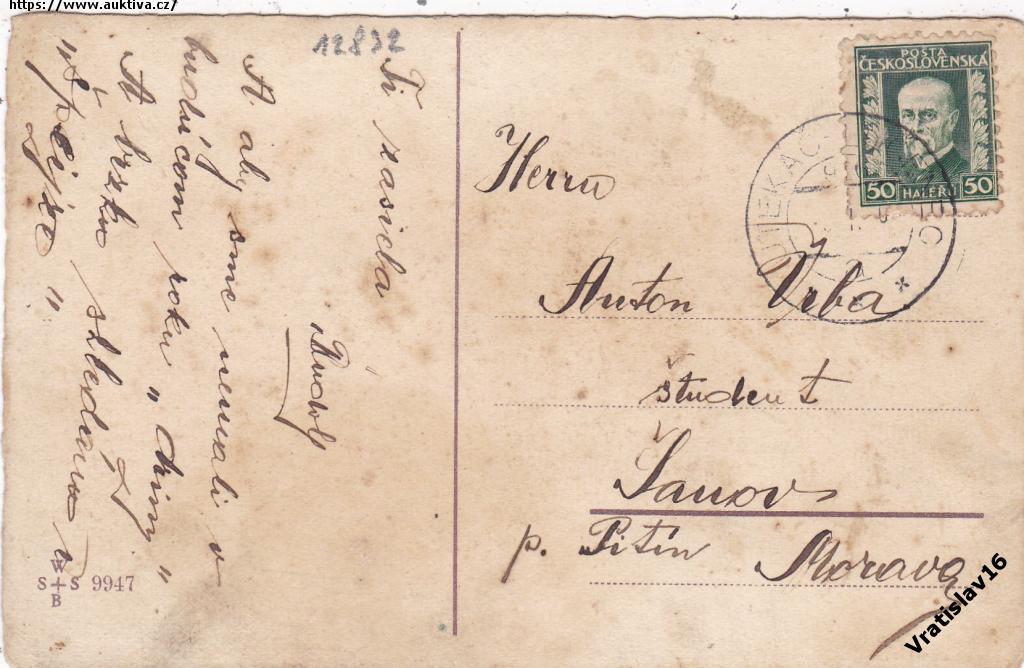 https://www.auktiva.cz/
12832
Ti zasiela
Rudolf
A aby sme nemali v
budúcom roku "chiny"
A brzku shledanu v
"Špeijze"
W
S + S 9947
B
POŠTA
ČESKOSLOVENSKÁ
50 HALÉŘŮ 50
UTEKÁČ
Herru
Anton Vrba
študent
Šanov
p. Pitín Morava
Vratislav16